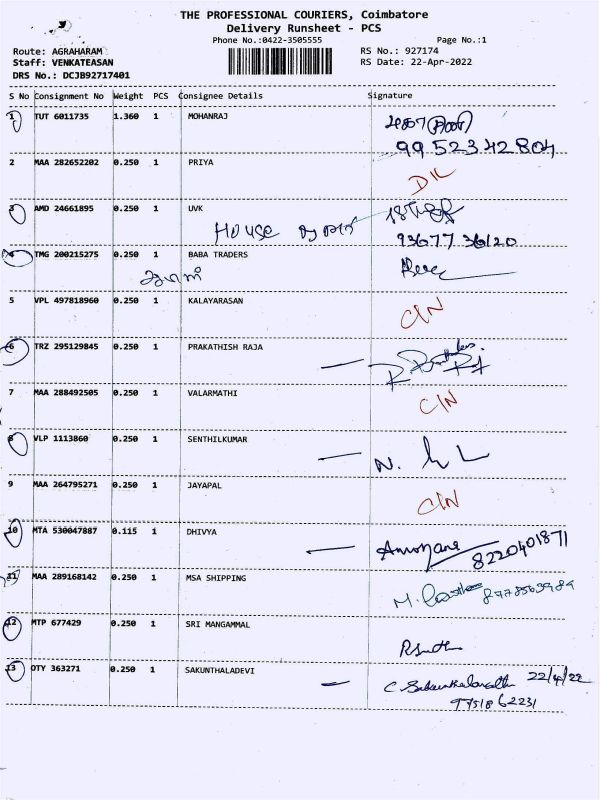 THE PROFESSIONAL COURIERS, Coimbatore
Delivery Runsheet - PCS
Phone No.:0422-3505555 Page No.:1
Route: AGRAHARAM RS No.: 927174
Staff: VENKATEASAN RS Date: 22-Apr-2022
DRS No.: DCJB92717401
S No Consignment No Weight PCS Consignee Details Signature
1 TUT 6011735 1.360 1 MOHANRAJ
99 52342804
2 MAA 282652202 0.250 1 PRIYA
DIL
3 AMD 24661895 0.250 1 UVK
House
93677 36120
4 TMG 200215275 0.250 1 BABA TRADERS
5 VPL 497818960 0.250 1 KALAYARASAN
C/N
6 TRZ 295129845 0.250 1 PRAKATHISH RAJA
7 MAA 288492505 0.250 1 VALARMATHI
C/N
8 VLP 1113860 0.250 1 SENTHILKUMAR
N.
9 MAA 264795271 0.250 1 JAYAPAL
C/N
10 MTA 530047887 0.115 1 DHIVYA
8220401871
11 MAA 289168142 0.250 1 MSA SHIPPING
M.
12 MTP 677429 0.250 1 SRI MANGAMMAL
13 OTY 363271 0.250 1 SAKUNTHALADEVI
C 22/4/22
97518 62231